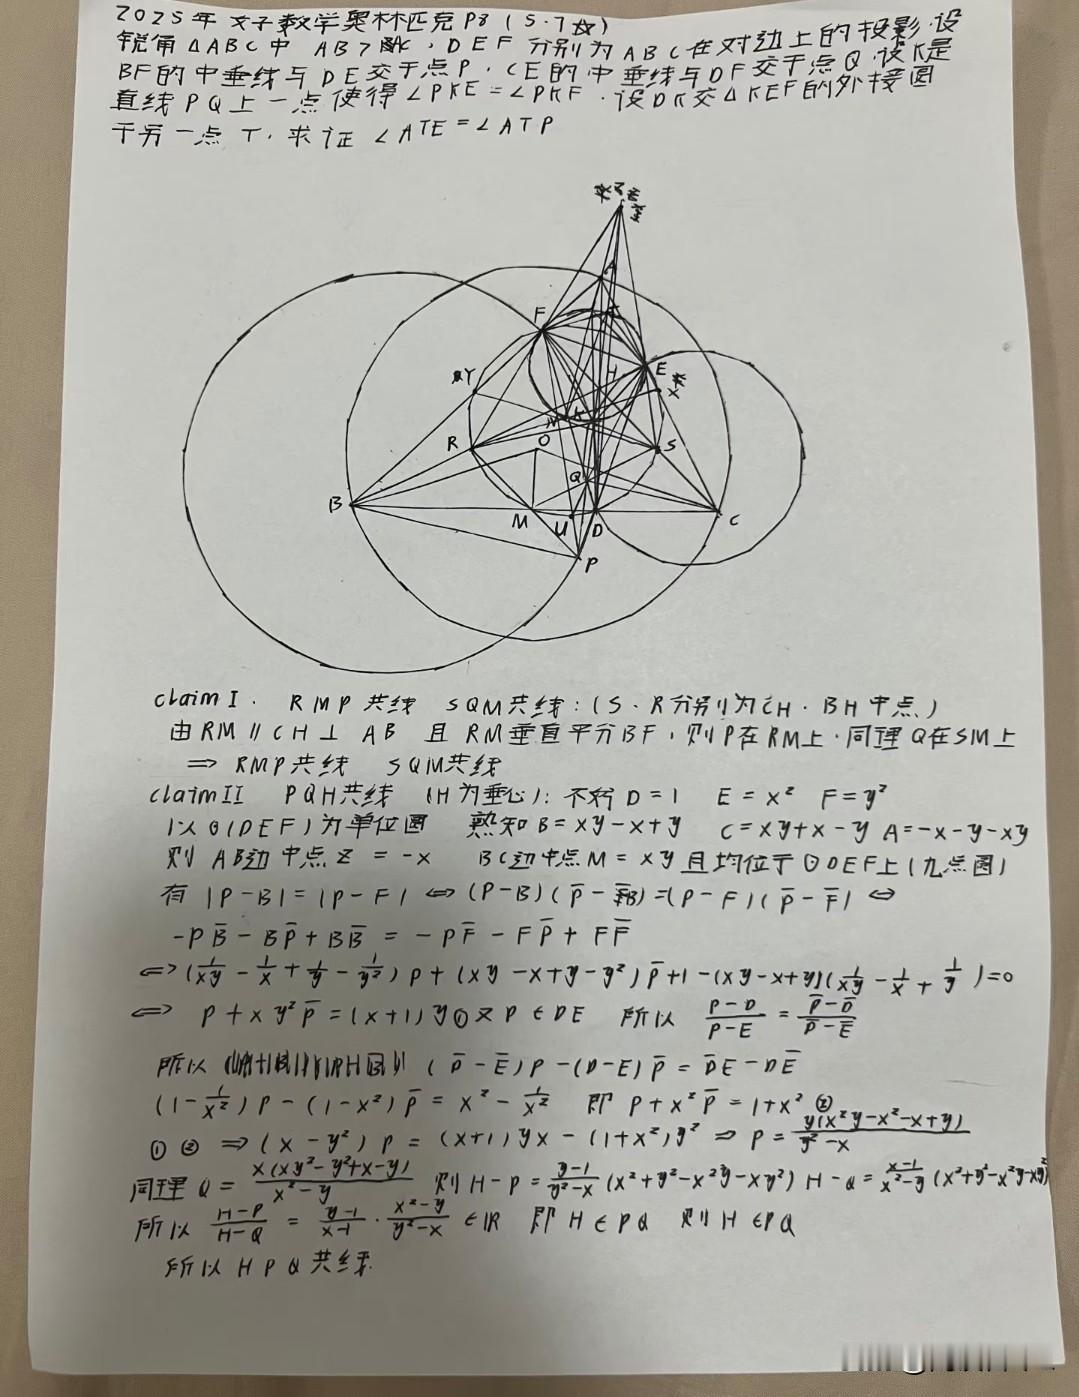 2025年女子数学奥林匹克P8(5.7改)
锐角△ABC中 AB>AC，DEF分别为ABC在对边上的投影.设
BF的中垂线与DE交于点P.CE的中垂线与DF交于点Q.设K是
直线PQ上一点使得∠PKE=∠PKF.设DK交△KEF的外接圆
于另一点T.求证∠ATE=∠ATP
A
F
T
E
H
Y
X
K
R
O
S
Q
B
M
U
D
C
P
claim I. RMP共线 SQM共线:(S.R分别为CH.BH中点)
由RM∥CH⊥AB 且RM垂直平分BF,则P在RM上.同理Q在SM上
⇒ RMP共线 SQM共线
claim II PQH共线 (H为垂心):不妨D=1 E=x² F=y²
以⊙(DEF)为单位圆 熟知B=xy-x+y C=xy+x-y A=-x-y-xy
则AB边中点Z=-x BC边中点M=xy且均位于⊙DEF上(九点圆)
有|P-B|=|P-F| ⇔ (P-B)(P̄-B̄)=(P-F)(P̄-F̄) ⇔
-PB̄-BP̄+BB̄=-PF̄-FP̄+FF̄
⇔(1/xy-1/x+1/y-1/y²)P+(xy-x+y-y²)P̄+1-(xy-x+y)(1/xy-1/x+1/y)=0
⇔ P+xy²P̄=(x+1)y① 又P∈DE 所以 (P-D)/(P-E)=(P̄-D̄)/(P̄-Ē)
所以 (D̄-Ē)P-(D-E)P̄=D̄E-DĒ
(1-1/x²)P-(1-x²)P̄=x²-1/x² 即P+x²P̄=1+x²②
①②⇒(x-y²)P=(x+1)yx-(1+x²)y²⇒P=y(x²y-x²-x+y)/(y²-x)
同理Q=x(xy²-y²+x-y)/(x²-y) 则H-P=(y-1)/(y²-x)(x²+y²-x²y-xy²) H-Q=(x-1)/(x²-y)(x²+y²-x²y-xy²)
所以 (H-P)/(H-Q)=(y-1)/(x-1)·(x²-y)/(y²-x)∈IR 即H∈PQ 则H∈PQ
所以HPQ共线.